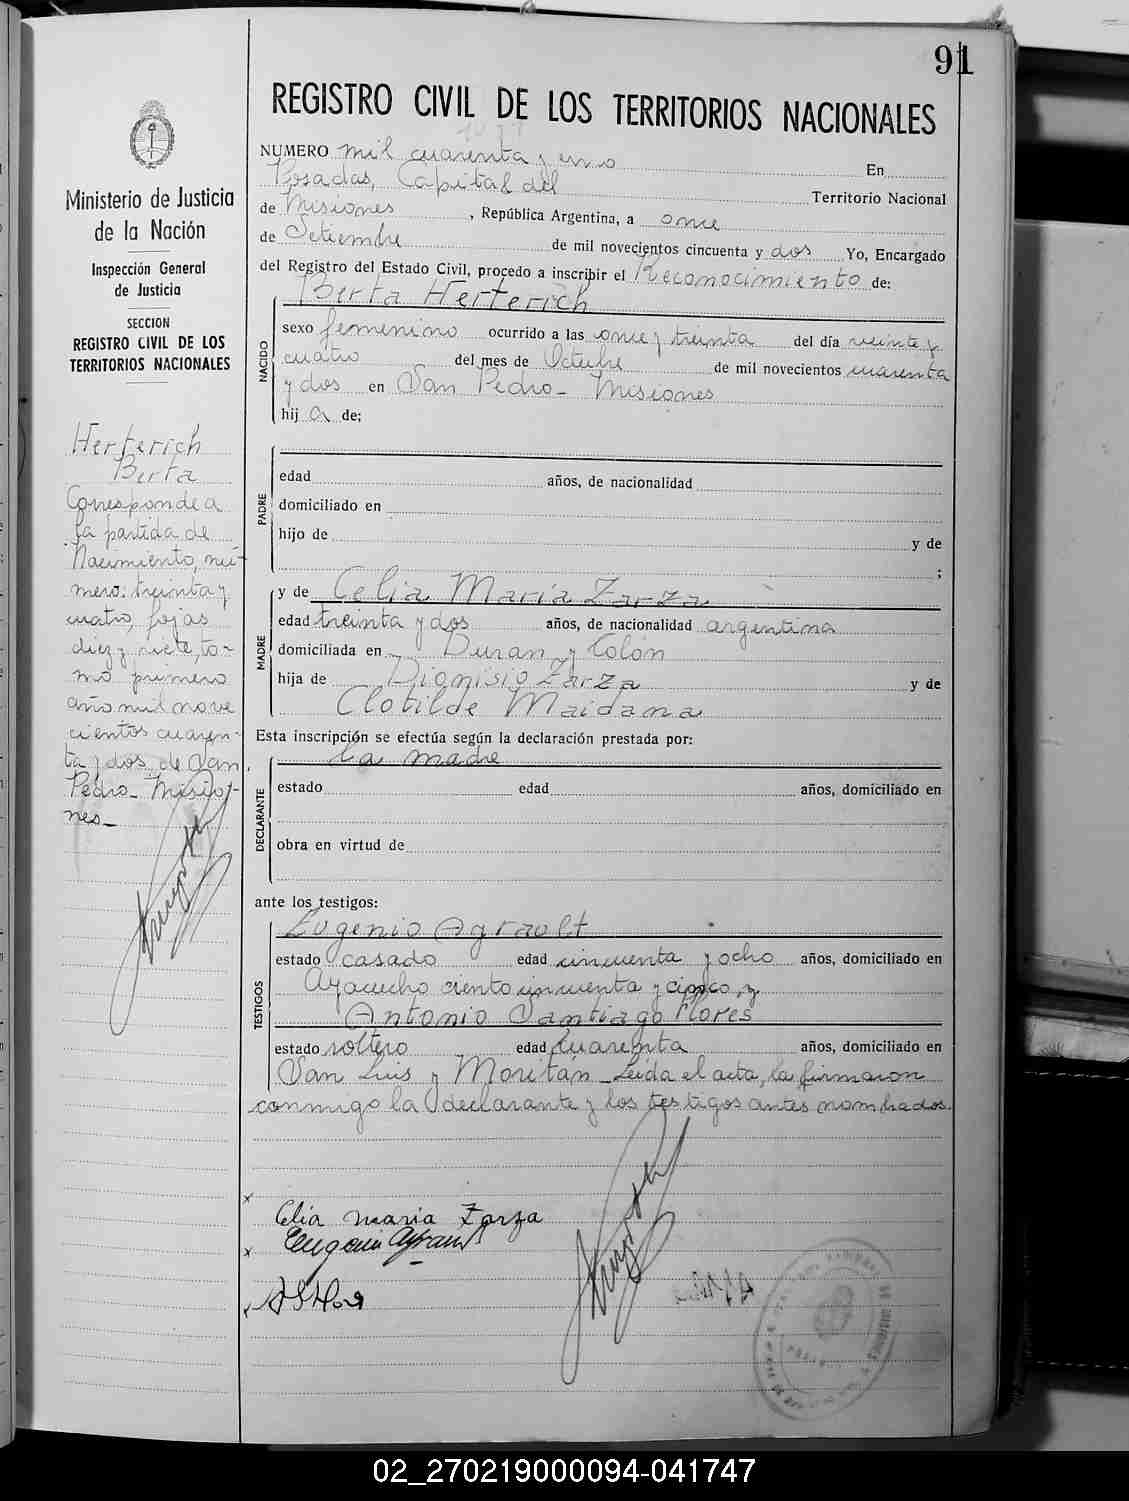 91
REGISTRO CIVIL DE LOS TERRITORIOS NACIONALES
NUMERO mil cuarenta y uno En
Posadas, Capital del Territorio Nacional
de Misiones, República Argentina, a once
de Setiembre de mil novecientos cincuenta y dos Yo, Encargado
del Registro del Estado Civil, procedo a inscribir el Reconocimiento de:
NACIDO
Berta Herterich
sexo femenino ocurrido a las once y treinta del día veinte y
cuatro del mes de Octubre de mil novecientos cuarenta
y dos en San Pedro - Misiones
hij a de;
PADRE
edad años, de nacionalidad
domiciliado en
hijo de y de
;
MADRE
y de Celia María Zarza
edad treinta y dos años, de nacionalidad argentina
domiciliada en Duran y Colón
hija de Dionisio Zarza y de
Clotilde Maidana
Esta inscripción se efectúa según la declaración prestada por:
DECLARANTE
la madre
estado edad años, domiciliado en
obra en virtud de
ante los testigos:
TESTIGOS
Eugenio Agrault
estado casado edad cincuenta y ocho años, domiciliado en
Ayacucho ciento cincuenta y cinco, y
Antonio Santiago Flores
estado soltero edad cuarenta años, domiciliado en
San Luis y Moritán - Leída el acta, la firmaron
conmigo la declarante y los testigos antes nombrados.
Celia maria Zarza
Ministerio de Justicia
de la Nación
Inspección General
de Justicia
SECCION
REGISTRO CIVIL DE LOS
TERRITORIOS NACIONALES
Herterich
Berta
Corresponde a
la partida de
Nacimiento, nú-
mero: treinta y
cuatro, fojas
diez y siete, to-
mo primero
año mil nove
cientos cuaren-
ta y dos, de San
Pedro - Misio-
nes -
02_270219000094-041747